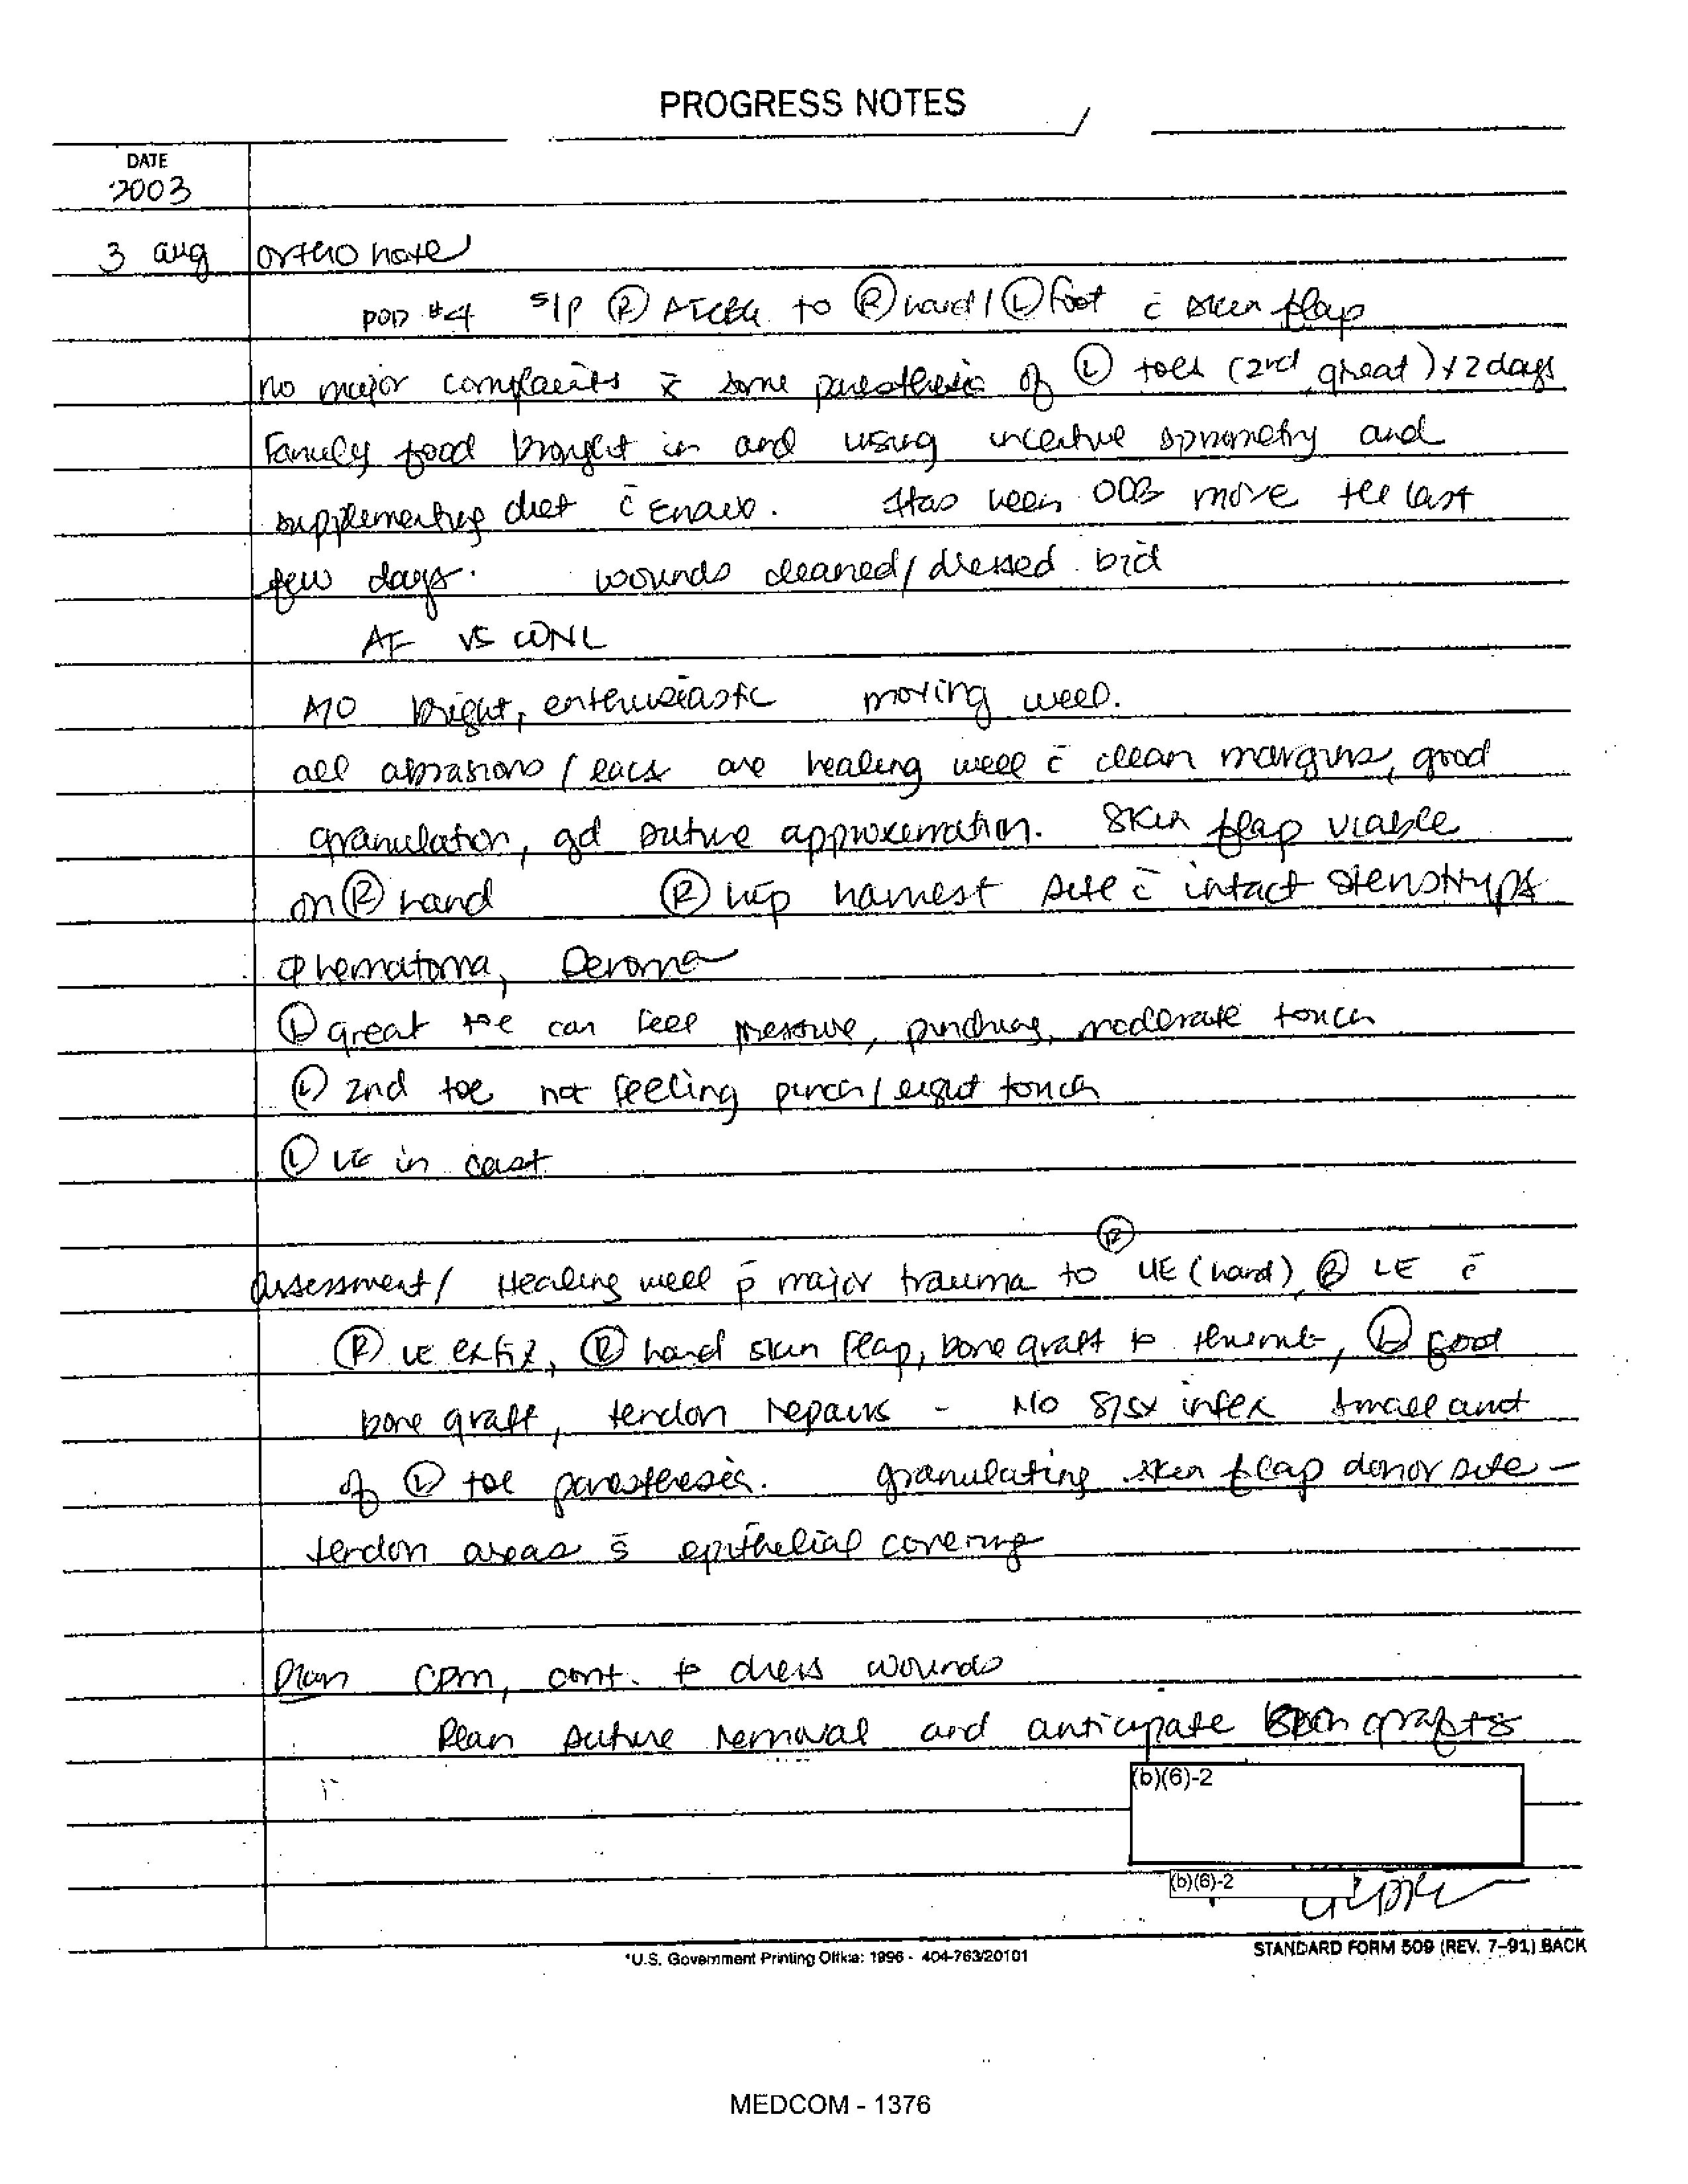 PROGRESS NOTES
DATE
2003
3 aug ortho note
POD #4 s/p Ⓡ AICBG to Ⓡ hand / Ⓛ foot c̄ skin flap
no major complaints x̄ some paresthesia of Ⓛ toes (2nd, great) x 2 days
Family food brought in and using incentive spirometry and
supplementing diet c̄ Ensure. Has been OOB more the last
few days. wounds cleaned/dressed bid
AF VS WNL
A/O bright, enthusiastic moving well.
all abrasions / lacs are healing well c̄ clean margins, good
granulation, gd suture approximation. Skin flap viable
on Ⓡ hand Ⓡ hip harvest site c̄ intact steristrips
∅ hematoma, seroma
Ⓛ great toe can feel pressure, pinching, moderate touch
Ⓛ 2nd toe not feeling pinch / light touch
Ⓛ LE in cast
Ⓡ
Assessment/ Healing well p̄ major trauma to UE (hand), Ⓡ LE c̄
Ⓡ LE exfix, Ⓡ hand skin flap, bone graft to thumb, Ⓛ foot
bone graft, tendon repairs - No s/sx infex small amt
of Ⓛ toe paresthesia. granulating skin flap donor site -
tendon areas s̄ epithelial covering
Plan CPM, cont. to dress wounds
Plan suture removal and anticipate skin grafts
(b)(6)-2
(b)(6)-2
*U.S. Government Printing Office: 1996 - 404-763/20101
STANDARD FORM 509 (REV. 7-91) BACK
MEDCOM - 1376